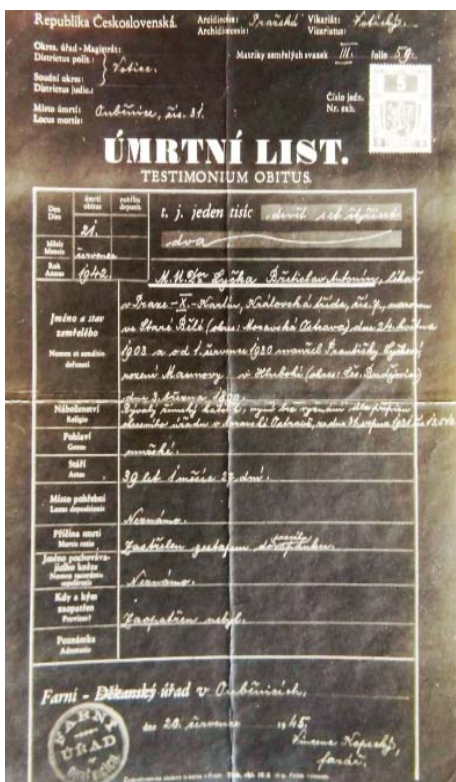 Republika Československá.
Arcidiecése: Pražská
Archidioecesis:
Vikariát: Votický.
Vicariatus:
Okres. úřad - Magistrát:
Districtus polit.:
Matriky zemřelých svazek III. folio 59.
Soudní okres: Votice.
Districtus judic.:
Číslo jedn.
Nr. exh.
5
Místo úmrtí: Oubénice, čís. 31.
Locus mortis:
ÚMRTNÍ LIST.
TESTIMONIUM OBITUS.
úmrtí
obitus
pohřbu
deposit.
Den
Dies
21.
t. j. jeden tisíc devět set čtyřicet
dva
Měsíc
Mensis
července
Rok
Annus
1942.
M.U.Dr. Lyčka Břetislav Antonín, lékař
v Praze -X.- Karlín, Královská třída, čís. 7, narozen
ve Staré Bělé (okres: Moravská Ostrava) dne 24. května
1903 a od 1. července 1930 manžel Františky Lyčkové,
rozené Maunovy v Hluboké (okres: Čes. Budějovice)
dne 3. března
Jméno a stav
zemřelého
Nomen et conditio
defuncti
Náboženství
Religio
Bývalý římský katolík, nyní bez vyznání dle přípisu
okresního úřadu v Moravské Ostravě, ze dne 31. srpna 1921
Pohlaví
Genus
mužské.
Stáří
Aetas
39 let 1 měsíc 27 dní.
Místo pohřební
Locus depositionis
Neznámo.
Příčina smrti
Mortis ratio
Zastřelen gestapem do pravého spánku.
Jméno pochovávajícího kněze
Nomen sacerdotis
sepelientis
Neznámo.
Kdy a kým
zaopatřen
Provisus?
Zaopatřen nebyl.
Poznámka
Adnotatio
Farní - Děkanský úřad v Oubénicích,
dne 20. července 1945.
Vincenc Kopecký,
farář.
FARNÍ
ÚŘAD